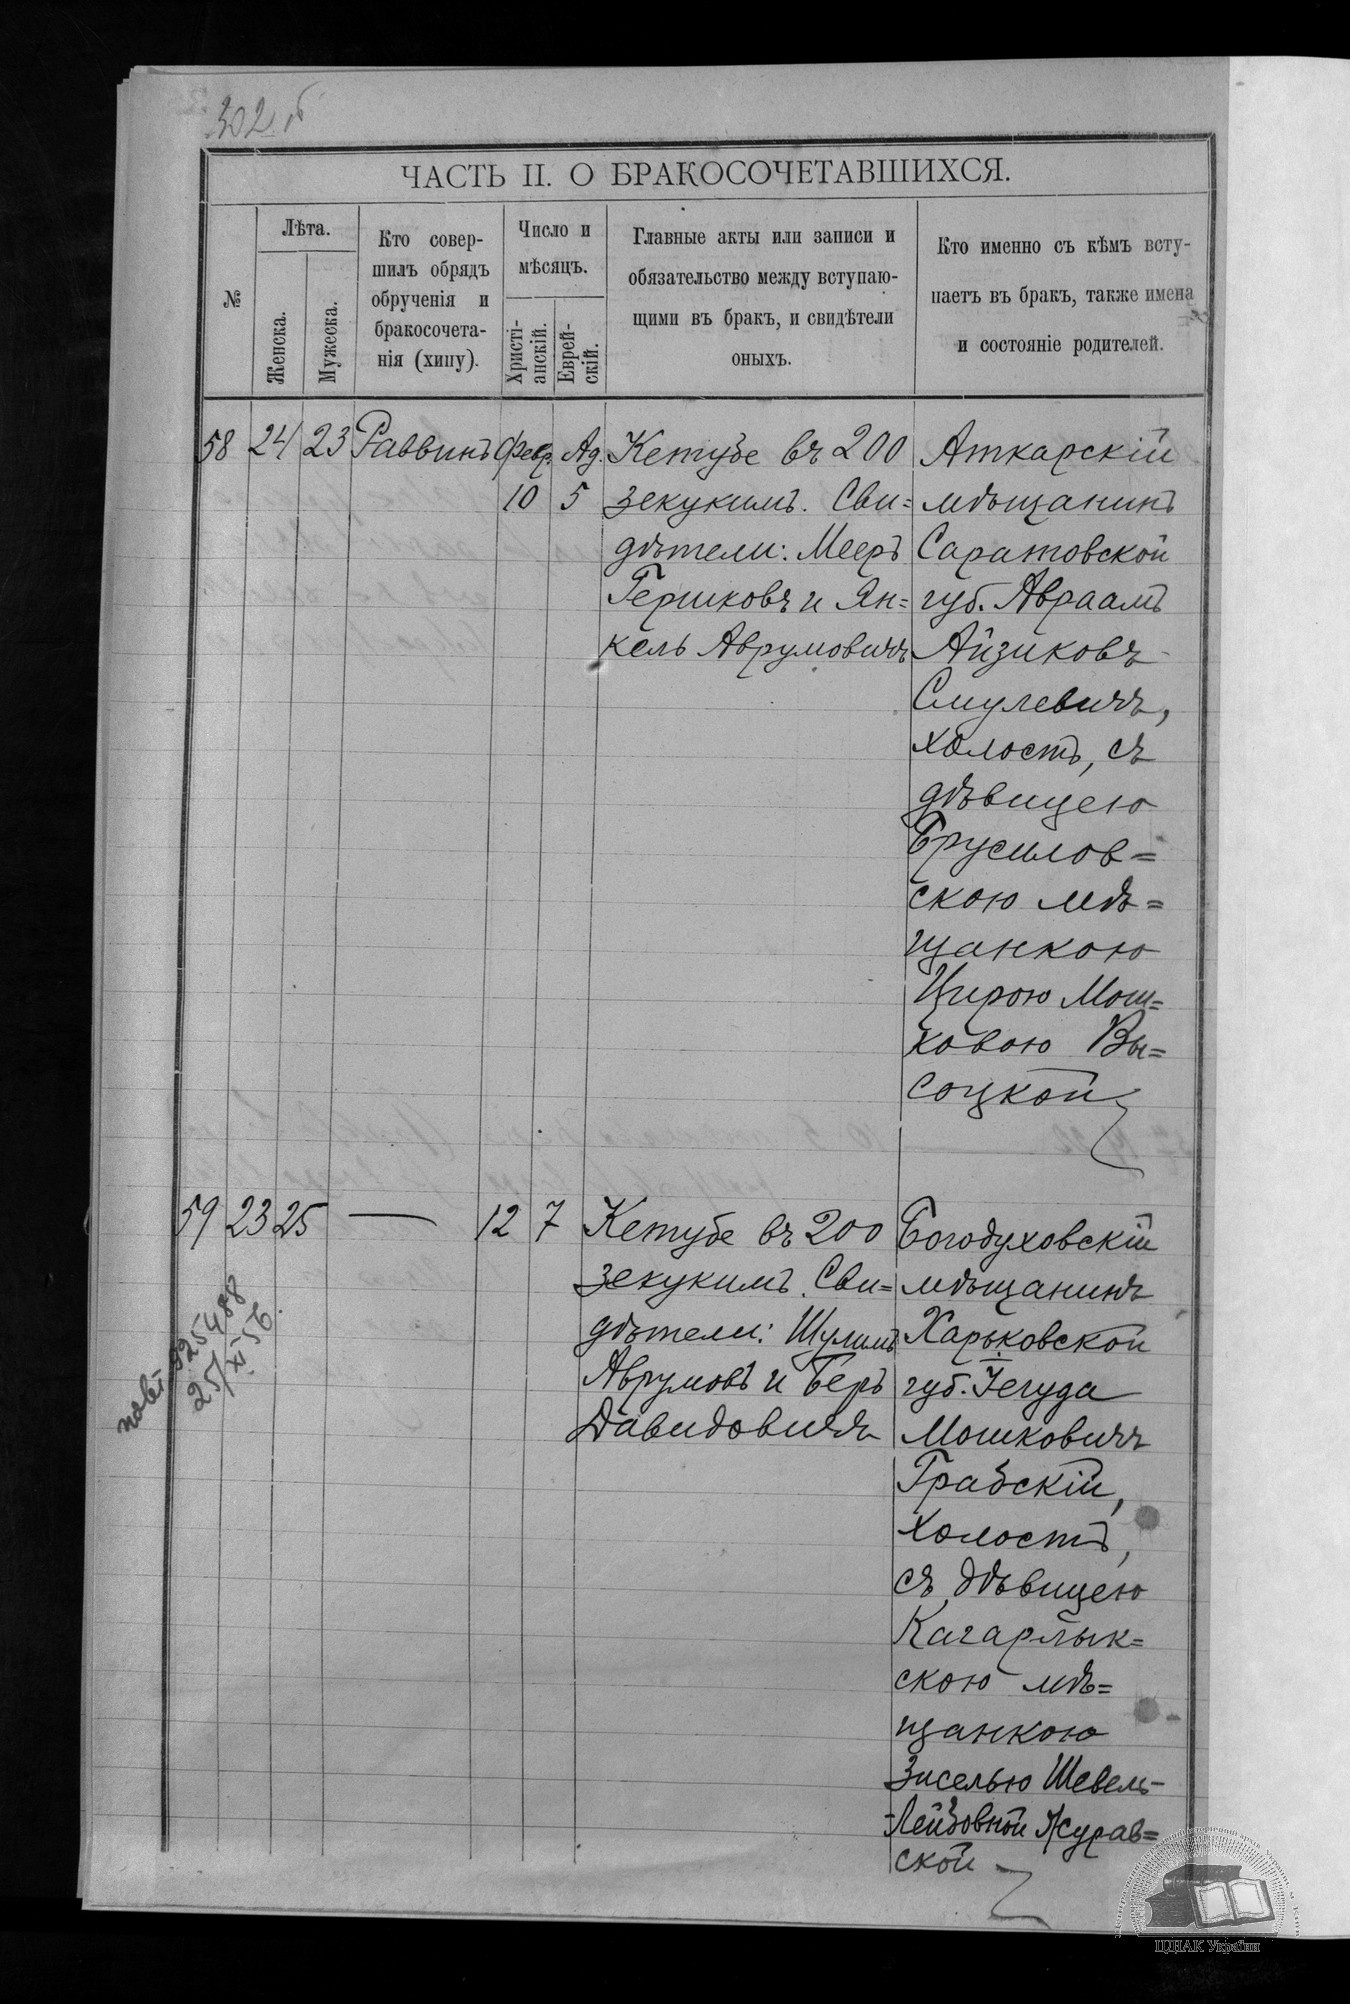 302 об
ЧАСТЬ II. О БРАКОСОЧЕТАВШИХСЯ.
№
Лѣта.
Женска.
Мужеска.
Кто совер-
шилъ обрядъ
обрученія и
бракосочета-
нія (хипу).
Число и
мѣсяцъ.
Христі-
анскій.
Еврей-
скій.
Главные акты или записи и
обязательство между вступаю-
щими въ бракъ, и свидѣтели
оныхъ.
Кто именно съ кѣмъ всту-
паетъ въ бракъ, также имена
и состояніе родителей.
58 24 23 Раввинъ Февр. 10 Ад. 5
Кетубе въ 200
зекукимъ. Сви=
дѣтели: Мееръ
Гершковъ и Ян=
кель Аврумовичъ
Аткарскій
мѣщанинъ
Саратовской
губ. Авраамъ
Айзиковъ
Смулевичъ,
холостъ, съ
дѣвицею
Брусилов=
скою мѣ=
щанкою
Цирою Мош=
ковою Вы=
соцкой
59 23 25 — 12 7
Кетубе въ 200
зекукимъ. Сви=
дѣтели: Шулимъ
Аврумовъ и Беръ
Давидовичъ
Богодуховскій
мѣщанинъ
Харьковской
губ. Іегуда
Мошковичъ
Грабскій,
холостъ,
съ дѣвицею
Кагарлык=
скою мѣ=
щанкою
Зиселью Шевель-
-Лейзовной Журав=
ской
925488
25/XI 56.
ЦДІАК України